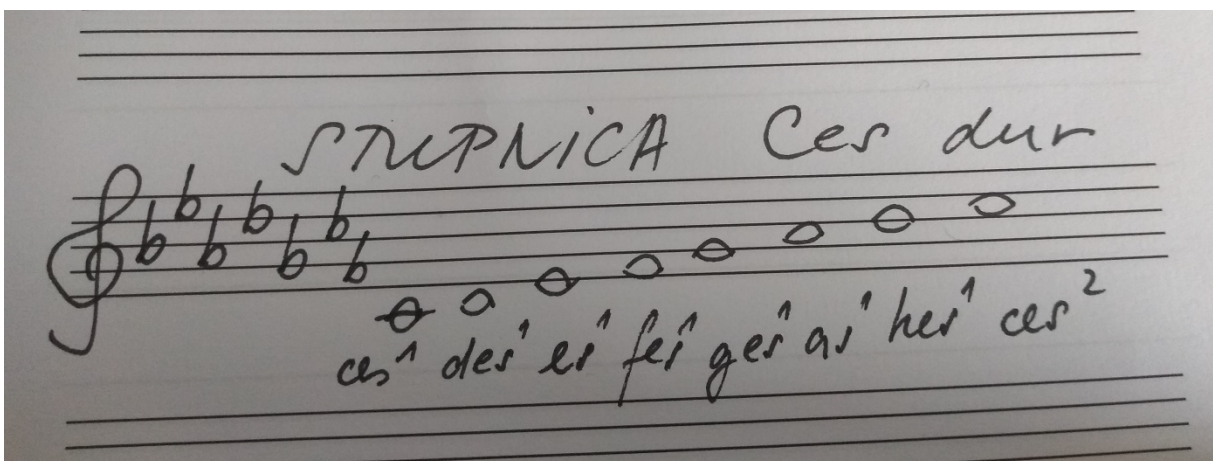 STUPNICA Ces dur
ces¹ des¹ es¹ fes¹ ges¹ as¹ hes¹ ces²